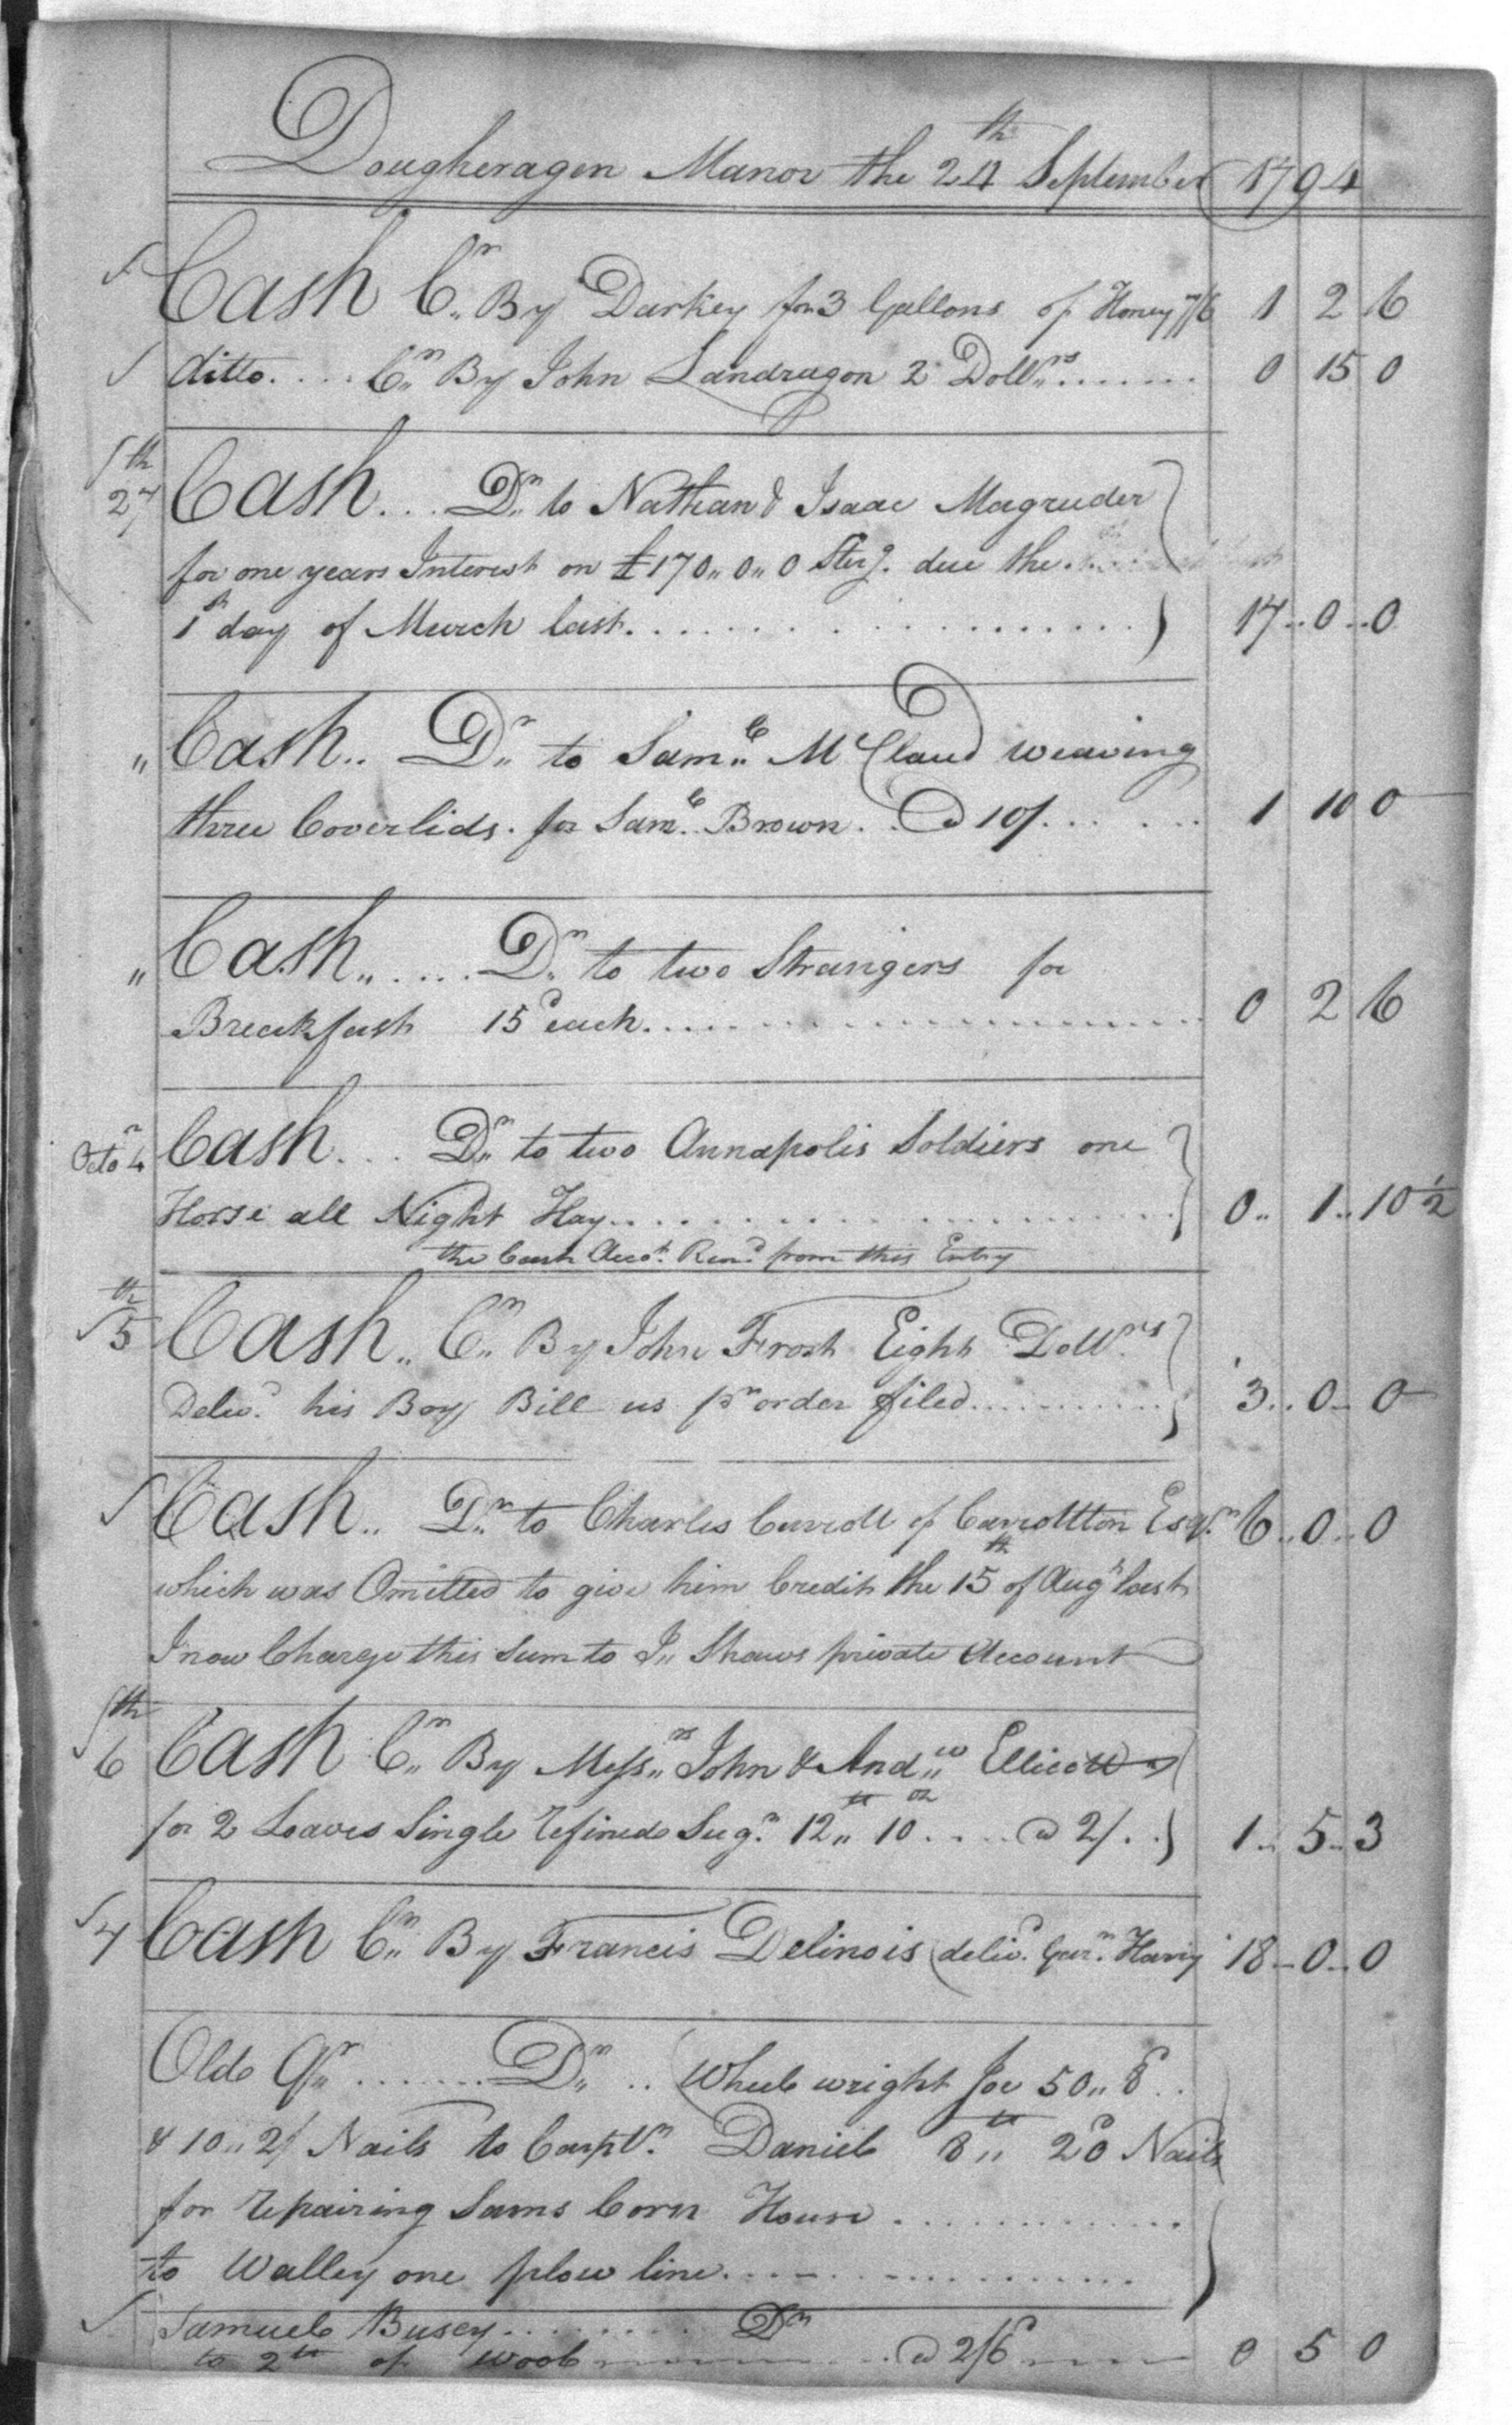 Dougheragen Manor the 24th September 1794
Cash Cr. By Darkey for 3 Gallons of Honey 7/6 1 2 6
ditto.... Cr. By John Landragon 2 Dollrs....... 0 15 0
27th Cash... Dr. to Nathan & Isaac Magruder
for one years Interest on £170,,0,,0 Sterg. due the
1st day of March last................ 17..0..0
,, Cash.. Dr. to Saml. McClaud weaving
three Coverlids. for Saml. Brown.. @ 10/...... 1 10 0
,, Cash,, .... Dr. to two Strangers for
Breakfast 15d each................ 0 2 6
Octor 4 Cash... Dr. to two Annapolis Soldiers one
Horse all Night Hay................ 0.. 1..10 1/2
the Cash Acct. from this Entry
5th Cash,, Cr. By John Frost Eight Dollrs
Delivd. his Boy Bill as pr order filed........... 3..0..0
Cash.. Dr. to Charles Carroll of Carrollton Esqr. 6..0..0
which was Omitted to give him Credit the 15th of Augt last
I now Charge this Sum to Jn. Shaws private Account
6th Cash Cr. By Messrs. John & Andw. Ellicott
for 2 Loaves Single refined Sugr. 12lb,, 10oz .... @ 2/.. 1..5..3
7 Cash Cr. By Francis Delinois (delivd. Garr. Harry 18..0..0
Old Qr. ....... Dr. .. (Wheel wright Joe 50,, 8..
& 10,, 2/ Nails to Carptr. Daniel 8lb,, 20d Nails
for repairing Sams Corn House .............
to Walley one plow line..................
Samuel Busey......... Dr
to 2lb of wool ........ @ 2/6 ..... 0 5 0